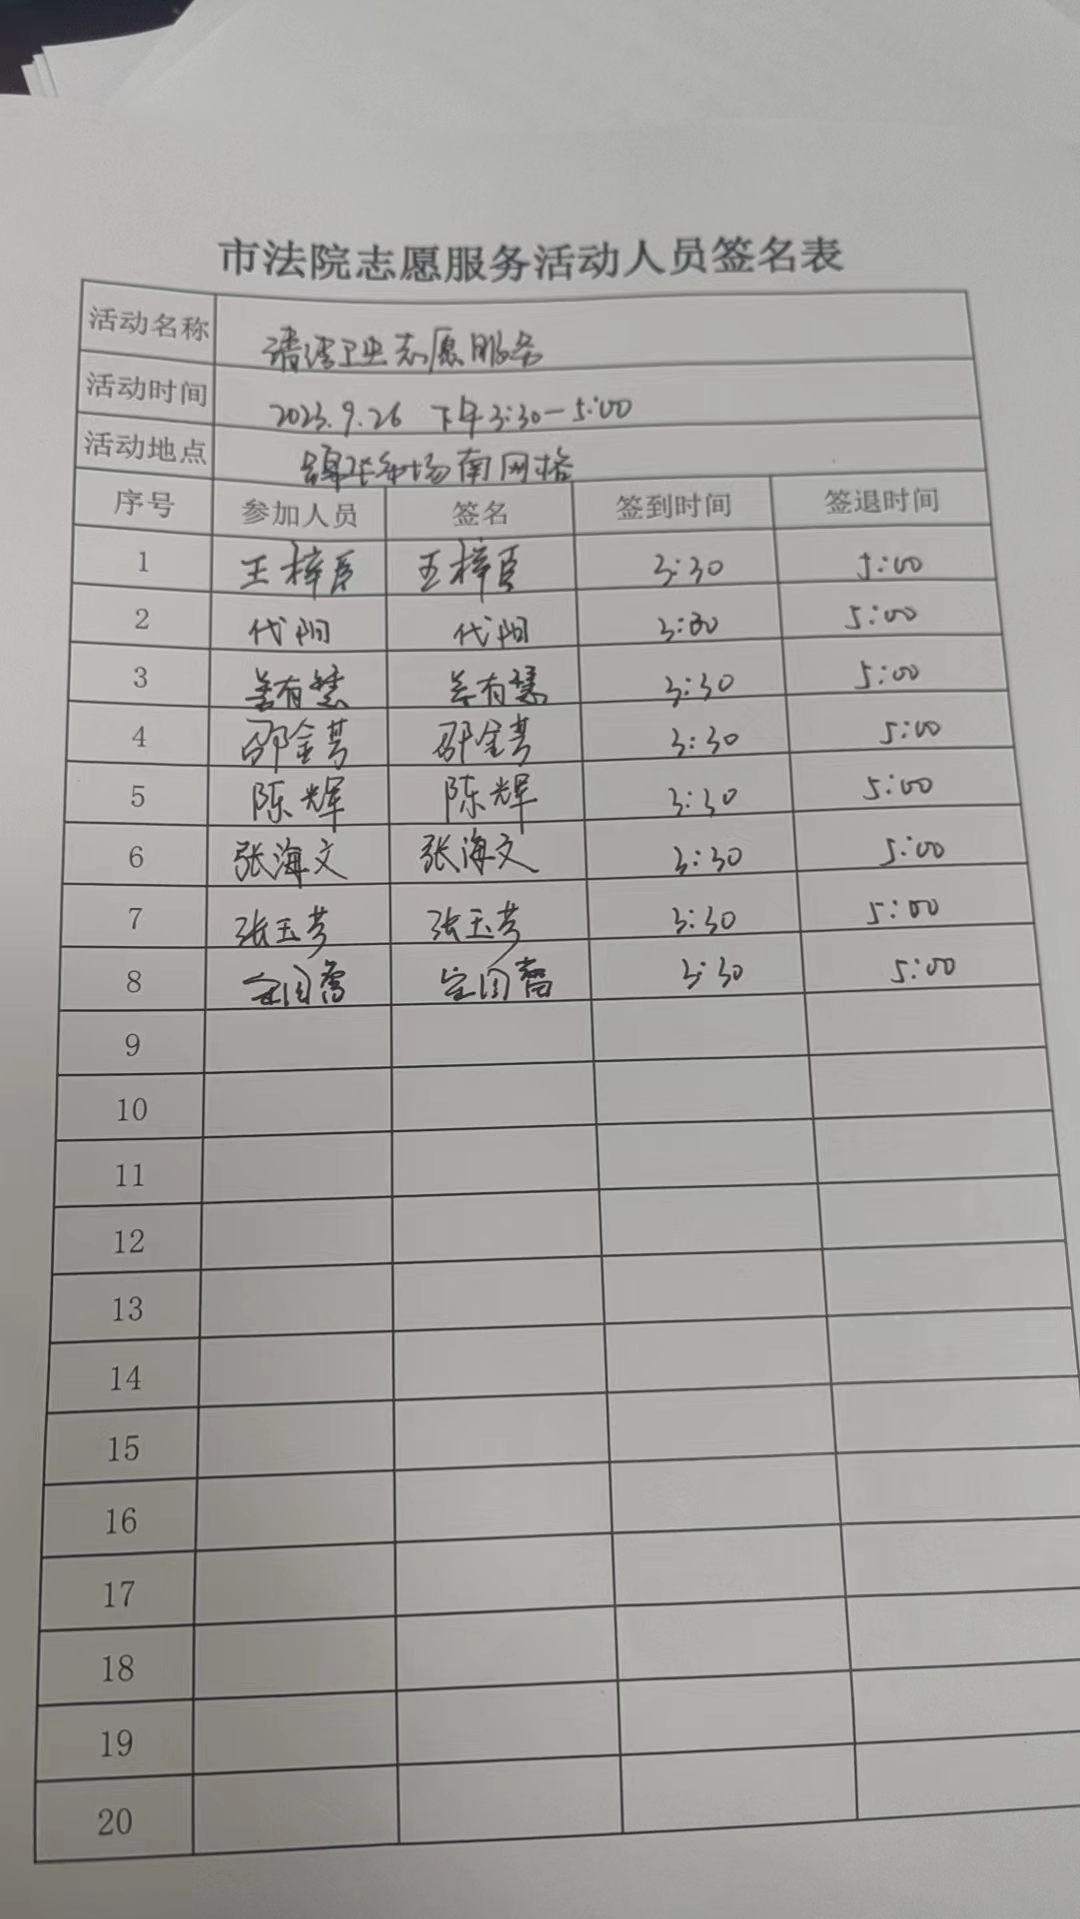 市法院志愿服务活动人员签名表
活动名称 清理卫生志愿服务
活动时间 2023.9.26 下午3:30-5:00
活动地点 市场南网格
序号 参加人员 签名 签到时间 签退时间
1 王梓臣 王梓臣 3:30 5:00
2 代阳 代阳 3:30 5:00
3 姜有慧 姜有慧 3:30 5:00
4 邵金 邵金 3:30 5:00
5 陈辉 陈辉 3:30 5:00
6 张海文 张海文 3:30 5:00
7 张玉芳 张玉芳 3:30 5:00
8 3:30 5:00
9
10
11
12
13
14
15
16
17
18
19
20